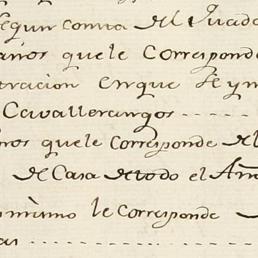 segun consta del Quade
años que le Corresponde
tracion enque seyn
Cavallerangos - - - - -
nos que le Corresponde del
de Casa de todo el Año
mismo le Corresponde
as - - - - - - - - - - -